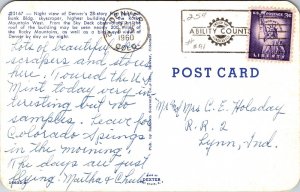 D167 — Night view of Denver's 28-story First National
Bank Bldg. skyscraper, highest building in the Rocky
Mountain West. From the Sky Deck observation
roof of the building may be seen
the Rocky Mountains, as well as a view of
Denver by day or by night.
Lots of beautiful sky
scrapers and stores
here. Toured the U.S.
Mint today very in-
teresting but no
samples. Leave for
Colorado Springs
in the morning.
The days are just
flying. Martha &
DENVER
1960
COLO.
ABILITY COUNTS
LIBERTY
POST CARD
Mr & Mrs C. E. Holaday
R. R. 2
Lynn, Ind.
DEXTER